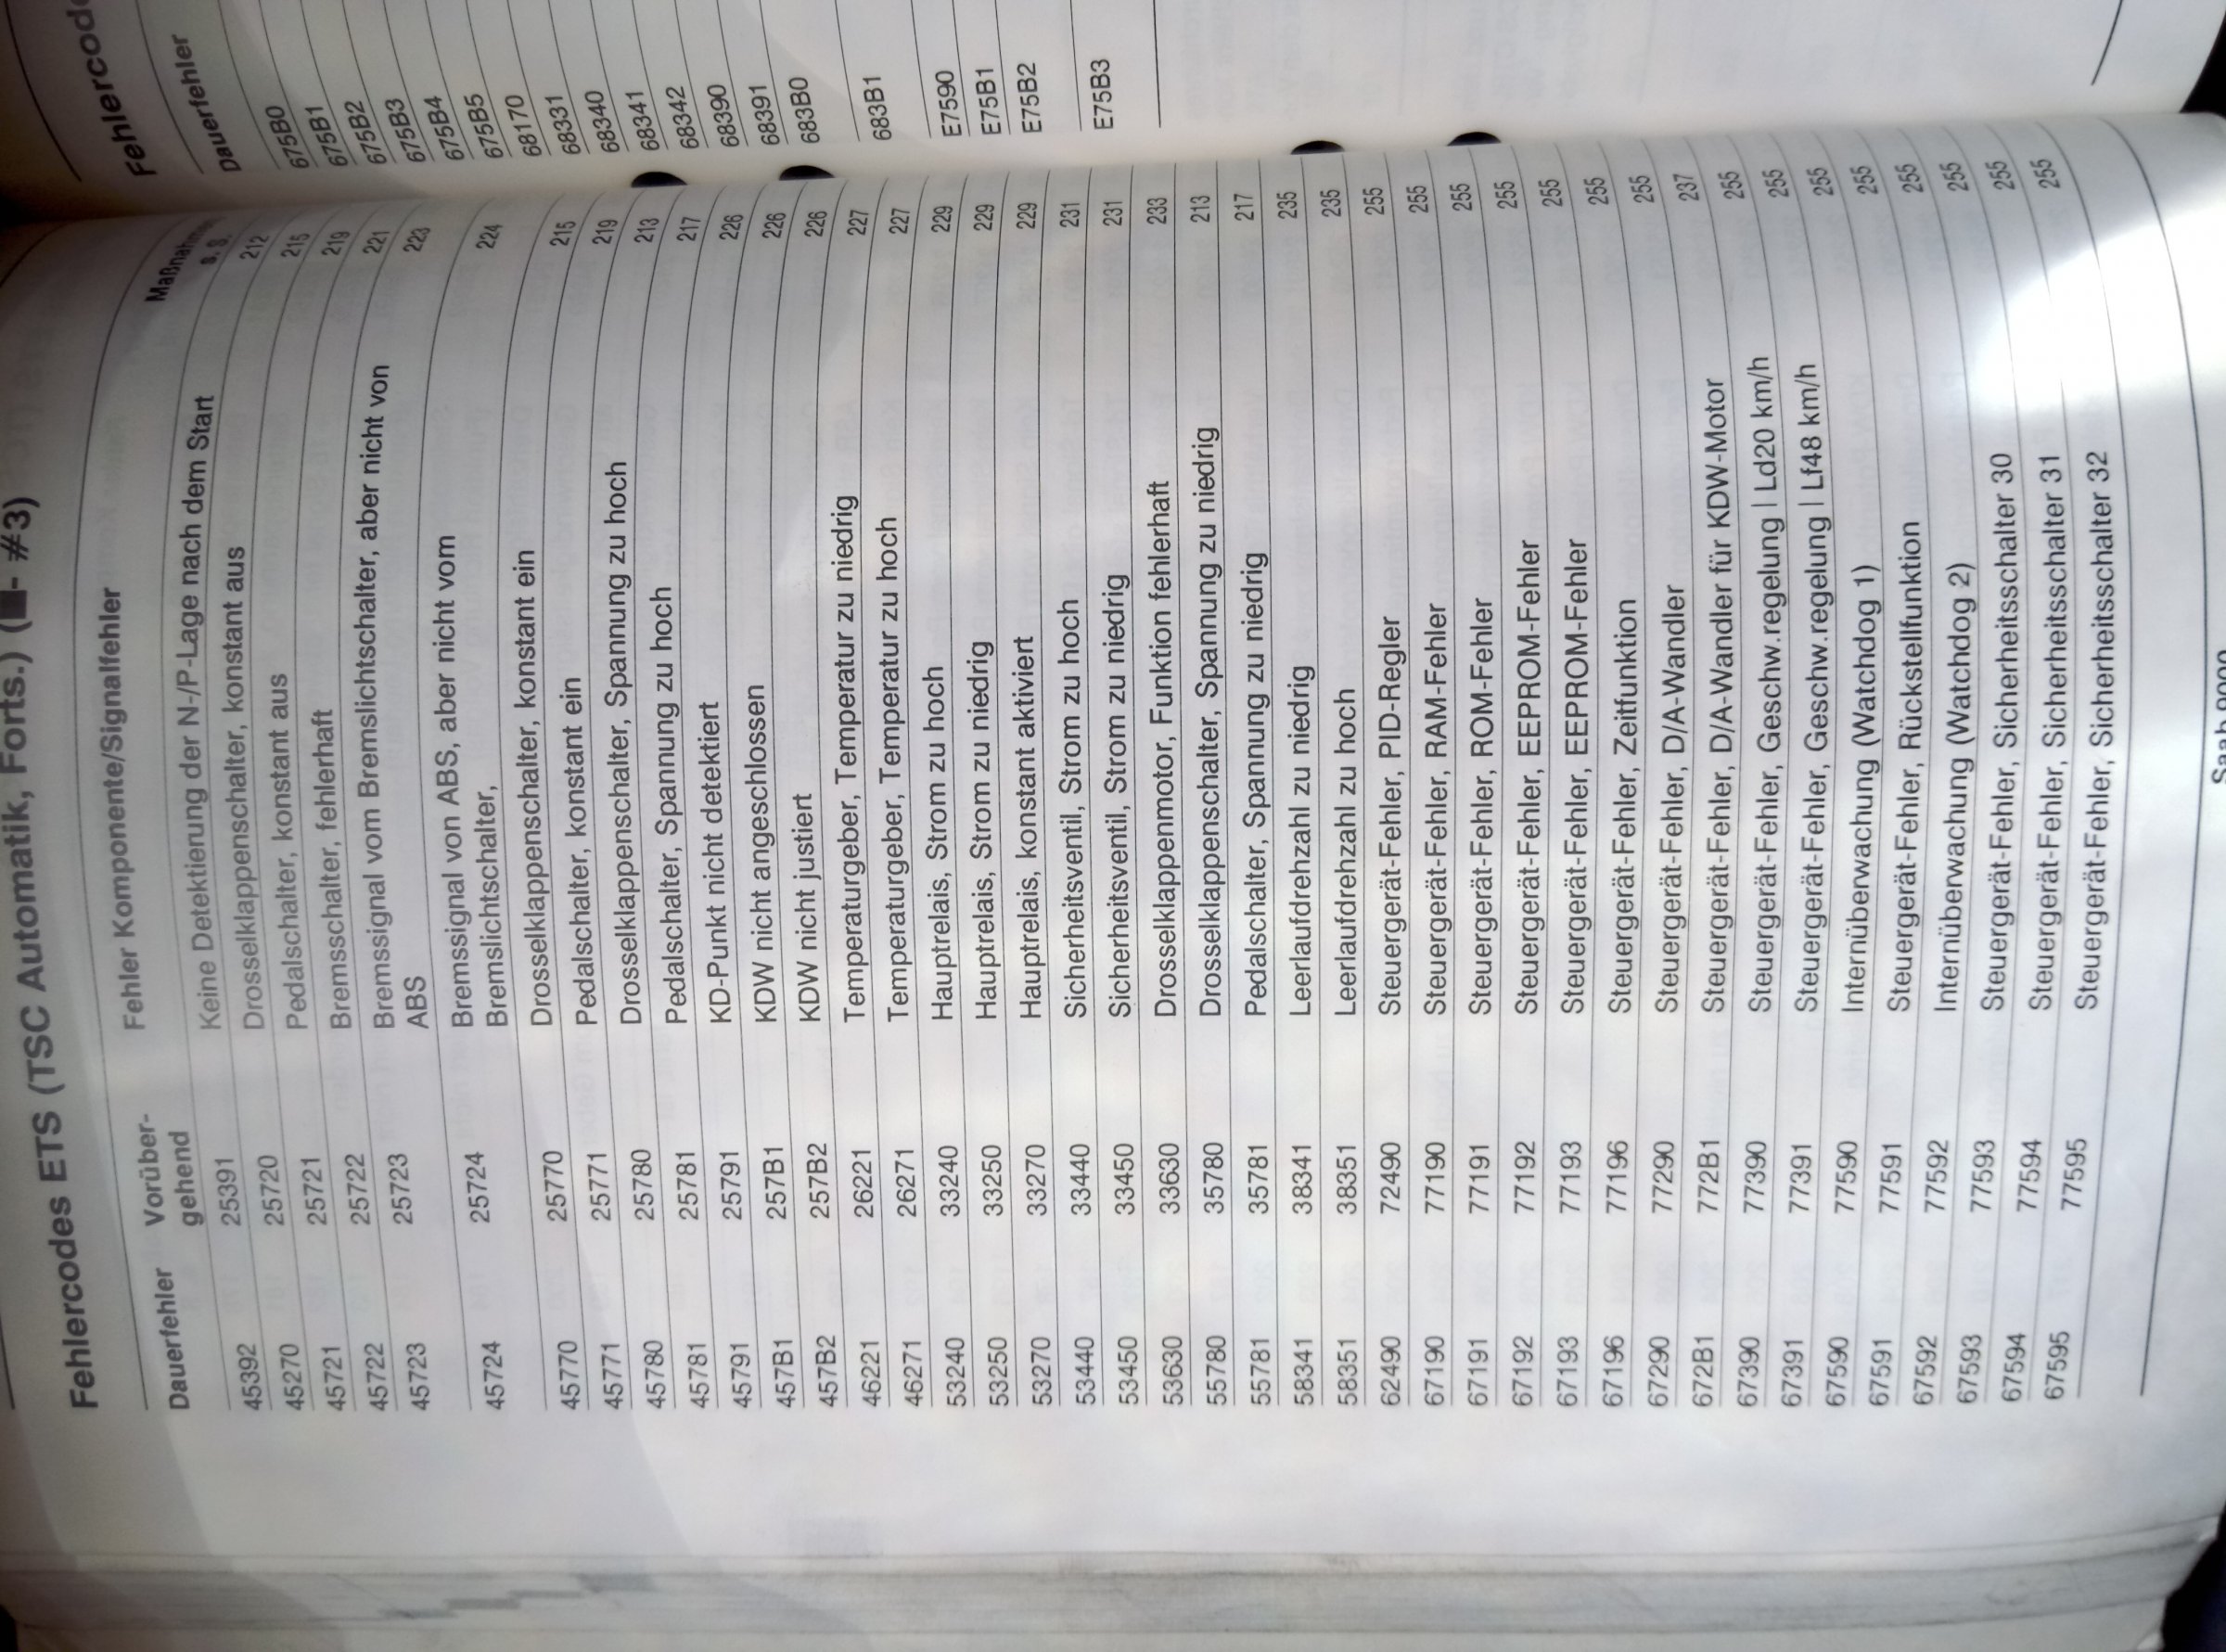 Fehlercodes ETS (TSC Automatik, Forts.) (■- #3)
Dauerfehler Vorüber-gehend Fehler Komponente/Signalfehler Maßnahme s. S.
45392 25391 Keine Detektierung der N-/P-Lage nach dem Start 212
45270 25720 Drosselklappenschalter, konstant aus 215
45721 25721 Pedalschalter, konstant aus 219
45722 25722 Bremsschalter, fehlerhaft 221
45723 25723 Bremssignal vom Bremslichtschalter, aber nicht von 223
ABS
45724 25724 Bremssignal von ABS, aber nicht vom 224
Bremslichtschalter,
45770 25770 Drosselklappenschalter, konstant ein 215
45771 25771 Pedalschalter, konstant ein 219
45780 25780 Drosselklappenschalter, Spannung zu hoch 213
45781 25781 Pedalschalter, Spannung zu hoch 217
45791 25791 KD-Punkt nicht detektiert 226
457B1 257B1 KDW nicht angeschlossen 226
457B2 257B2 KDW nicht justiert 226
46221 26221 Temperaturgeber, Temperatur zu niedrig 227
46271 26271 Temperaturgeber, Temperatur zu hoch 227
53240 33240 Hauptrelais, Strom zu hoch 229
53250 33250 Hauptrelais, Strom zu niedrig 229
53270 33270 Hauptrelais, konstant aktiviert 229
53440 33440 Sicherheitsventil, Strom zu hoch 231
53450 33450 Sicherheitsventil, Strom zu niedrig 231
53630 33630 Drosselklappenmotor, Funktion fehlerhaft 233
55780 35780 Drosselklappenschalter, Spannung zu niedrig 213
55781 35781 Pedalschalter, Spannung zu niedrig 217
58341 38341 Leerlaufdrehzahl zu niedrig 235
58351 38351 Leerlaufdrehzahl zu hoch 235
62490 72490 Steuergerät-Fehler, PID-Regler 255
67190 77190 Steuergerät-Fehler, RAM-Fehler 255
67191 77191 Steuergerät-Fehler, ROM-Fehler 255
67192 77192 Steuergerät-Fehler, EEPROM-Fehler 255
67193 77193 Steuergerät-Fehler, EEPROM-Fehler 255
67196 77196 Steuergerät-Fehler, Zeitfunktion 255
67290 77290 Steuergerät-Fehler, D/A-Wandler 255
672B1 772B1 Steuergerät-Fehler, D/A-Wandler für KDW-Motor 237
67390 77390 Steuergerät-Fehler, Geschw.regelung | Ld20 km/h 255
67391 77391 Steuergerät-Fehler, Geschw.regelung | Lf48 km/h 255
67590 77590 Internüberwachung (Watchdog 1) 255
67591 77591 Steuergerät-Fehler, Rückstellfunktion 255
67592 77592 Internüberwachung (Watchdog 2) 255
67593 77593 Steuergerät-Fehler, Sicherheitsschalter 30 255
67594 77594 Steuergerät-Fehler, Sicherheitsschalter 31 255
67595 77595 Steuergerät-Fehler, Sicherheitsschalter 32 255
Saab 9000
Fehlercod
Dauerfehler
675B0
675B1
675B2
675B3
675B4
675B5
68170
68331
68340
68341
68342
68390
68391
683B0
683B1
E7590
E75B1
E75B2
E75B3